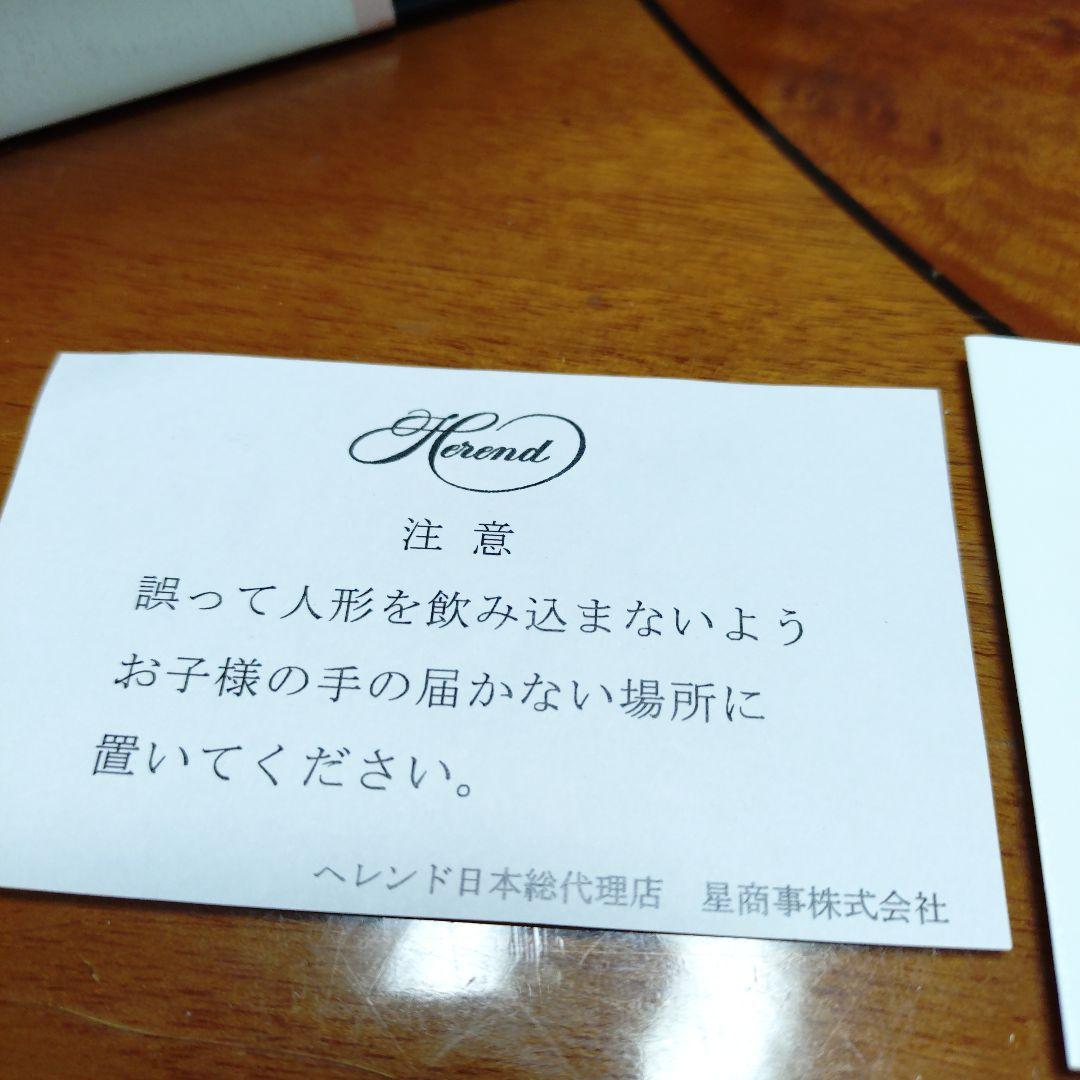 Herend
注意
誤って人形を飲み込まないよう
お子様の手の届かない場所に
置いてください。
ヘレンド日本総代理店　星商事株式会社